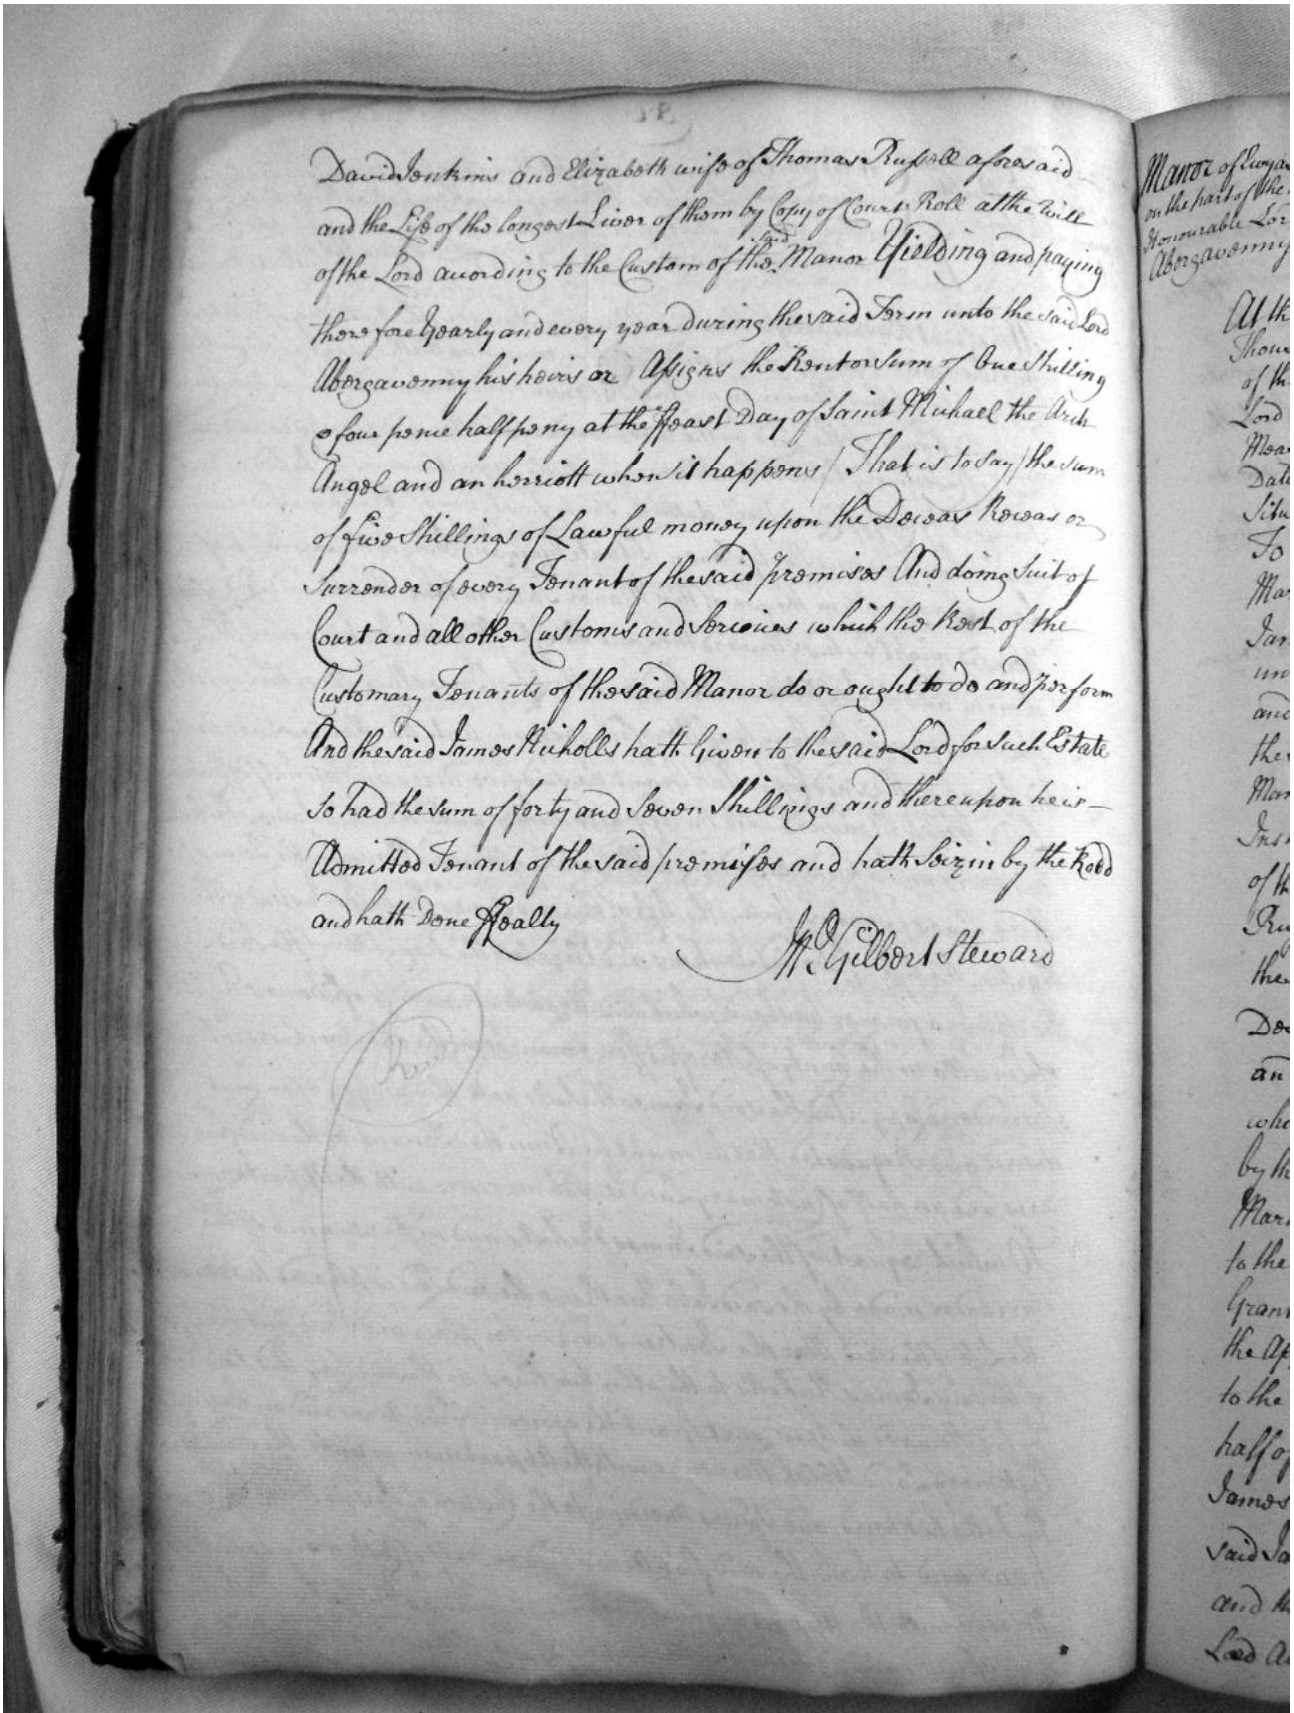 David Jenkins and Elizabeth wife of Thomas Russell aforesaid
and the Life of the longest Liver of them by Copy of Court Roll at the Will
of the Lord according to the Custom of the said Manor Yielding and paying
therefore Yearly and every year during the said Term unto the said Lord
Abergavenny his heirs or Assigns the Rent or Sum of One Shilling
& four pence half peny at the ffeast Day of Saint Michael the Arch
Angel and an herriott when it happens / That is to say / the sum
of five Shillings of Lawful money upon the Deceas Releas or
Surrender of every Tenant of the said premises And doing Suit of
Court and all other Customs and Services which the Rest of the
Customary Tenants of the said Manor do or ought to do and perform
And the said James Nicholls hath Given to the said Lord for such Estate
so had the sum of forty and Seven Shillings and thereupon he is
Admitted Tenant of the said premises and hath Seizin by the Rodd
and hath Done ffealty
Gilbert Steward
Manor of
on the part of the
Honourable
Abergavenny
At
of
Lord
To
and
of
the
an
by
to the
the
to the
half
James
said
and
Lord